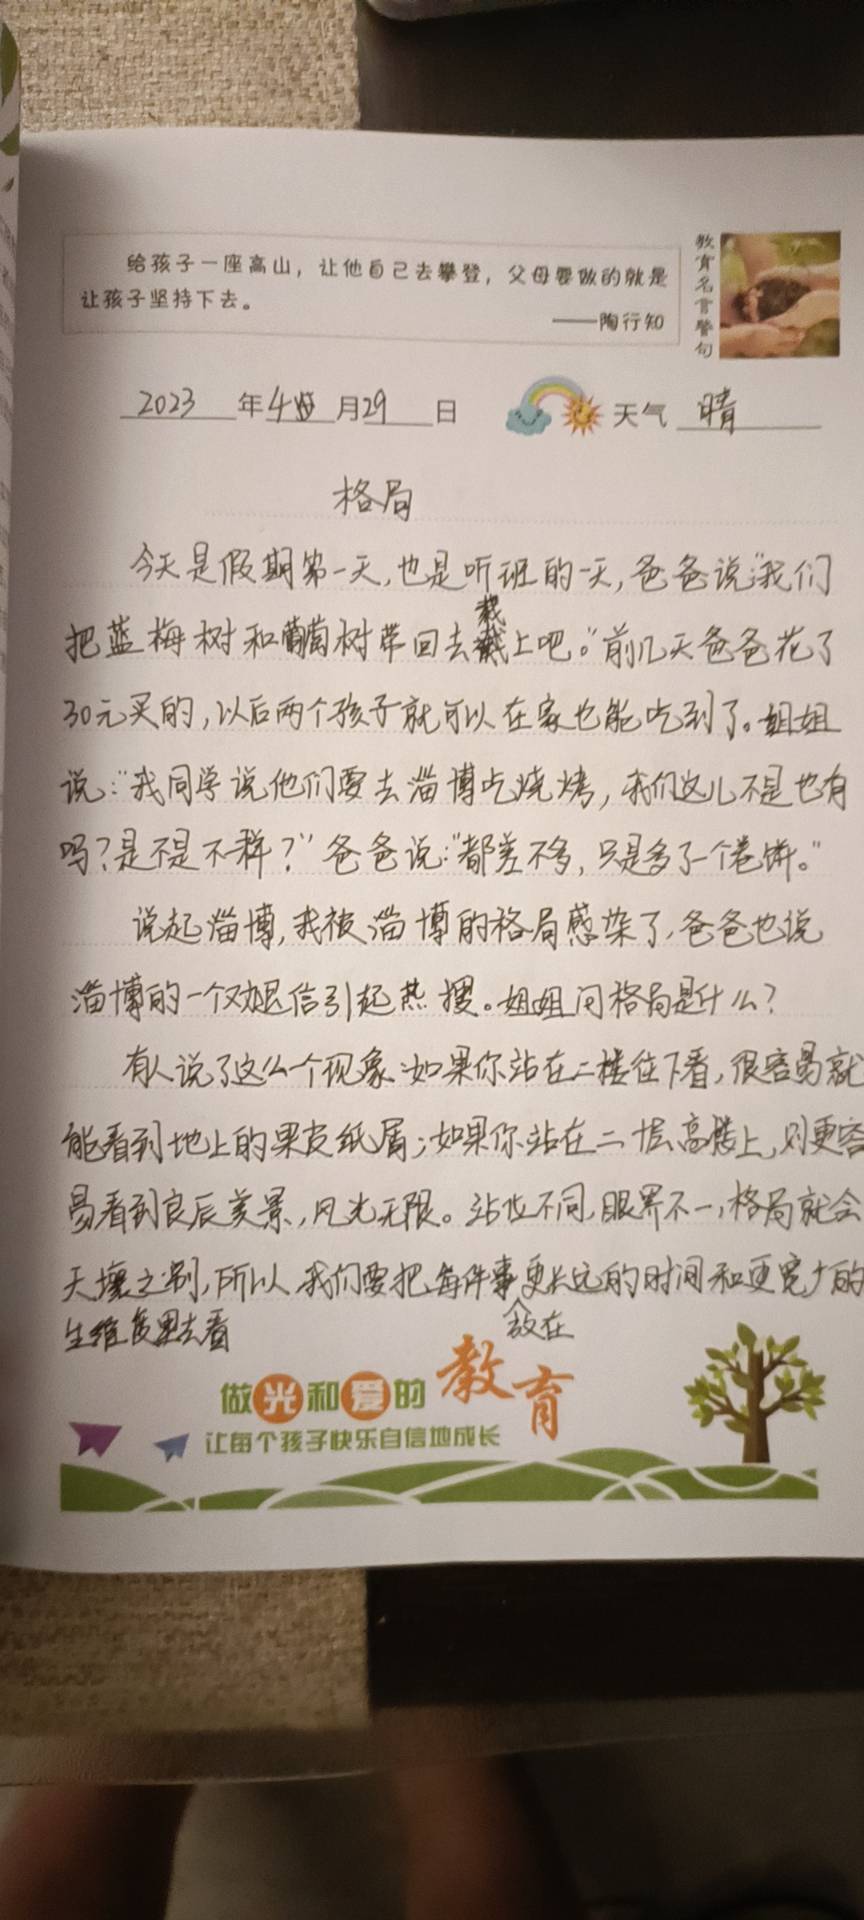 给孩子一座高山，让他自己去攀登，父母要做的就是
让孩子坚持下去。
——陶行知
教育名言警句
2023年4月29日 天气 晴
格局
今天是假期第一天,也是听班的一天,爸爸说:"我们
把蓝梅树和葡萄树带回去栽上吧。"前几天爸爸花了
30元买的,以后两个孩子就可以在家也能吃到了。姐姐
说:"我同学说他们要去淄博吃烧烤,我们这儿不是也有
吗?是不是不一样?"爸爸说:"都差不多,只是多了一个卷饼。"
说起淄博,我被淄博的格局感染了,爸爸也说
淄博的一个致信引起热搜。姐姐问格局是什么?
有人说了这么个现象:如果你站在二楼往下看,很容易就
能看到地上的果皮纸屑;如果你站在二十层高楼上,则更容
易看到良辰美景,风光无限。站位不同,眼界不一,格局就会
天壤之别,所以,我们要把每件事放在更长远的时间和更宽广的
维度里去看
做光和爱的教育
让每个孩子快乐自信地成长